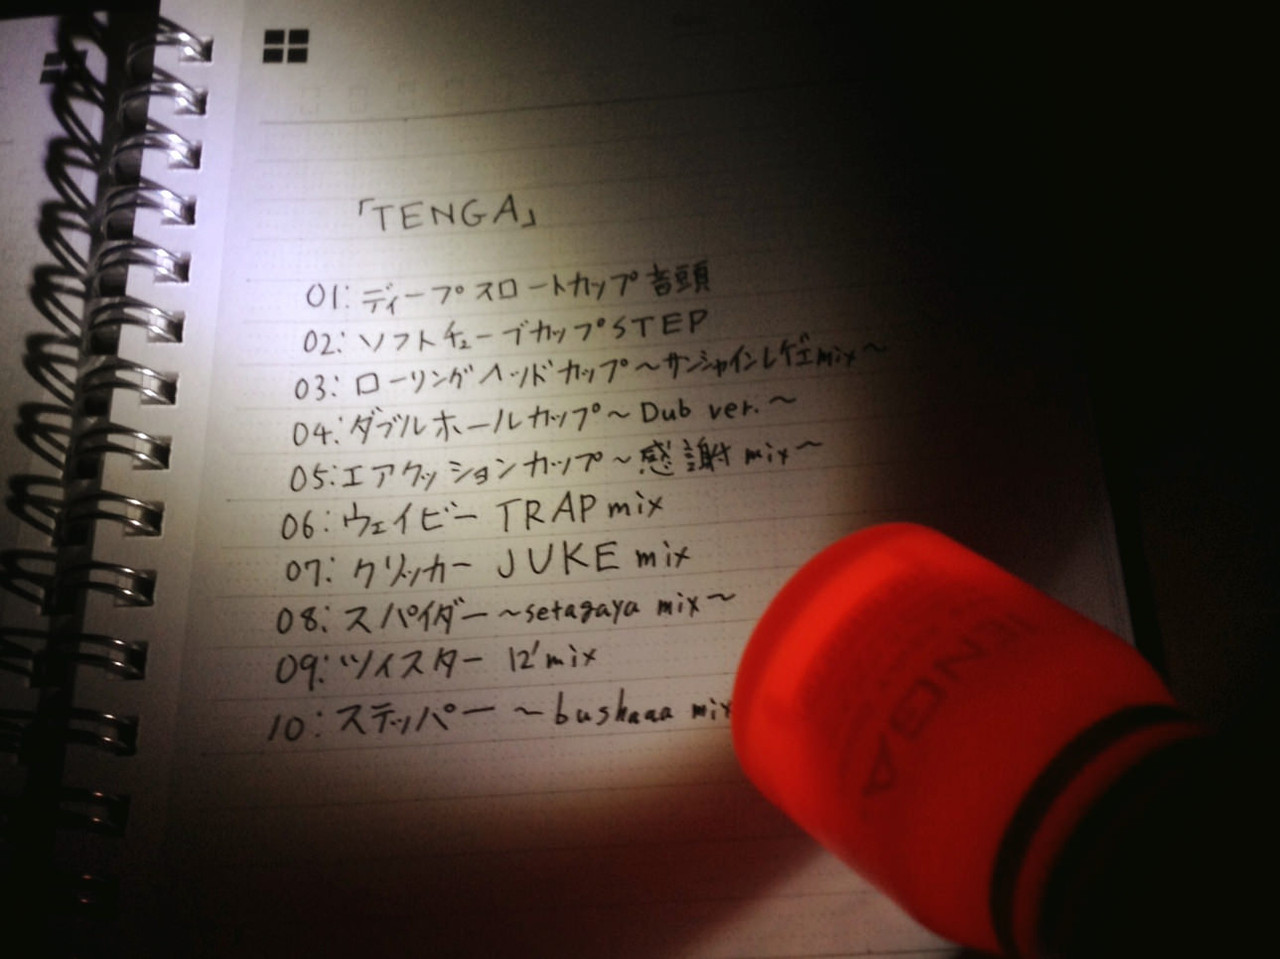 「TENGA」
01:ディープスロートカップ音頭
02:ソフトチューブカップSTEP
03:ローリングヘッドカップ～サンシャインレゲエmix～
04:ダブルホールカップ～Dub ver.～
05:エアクッションカップ～感謝mix～
06:ウェイビー TRAP mix
07:クリッカー JUKE mix
08:スパイダー～setagaya mix～
09:ツイスター 12'mix
10:ステッパー ～bushaaa mix
TENGA